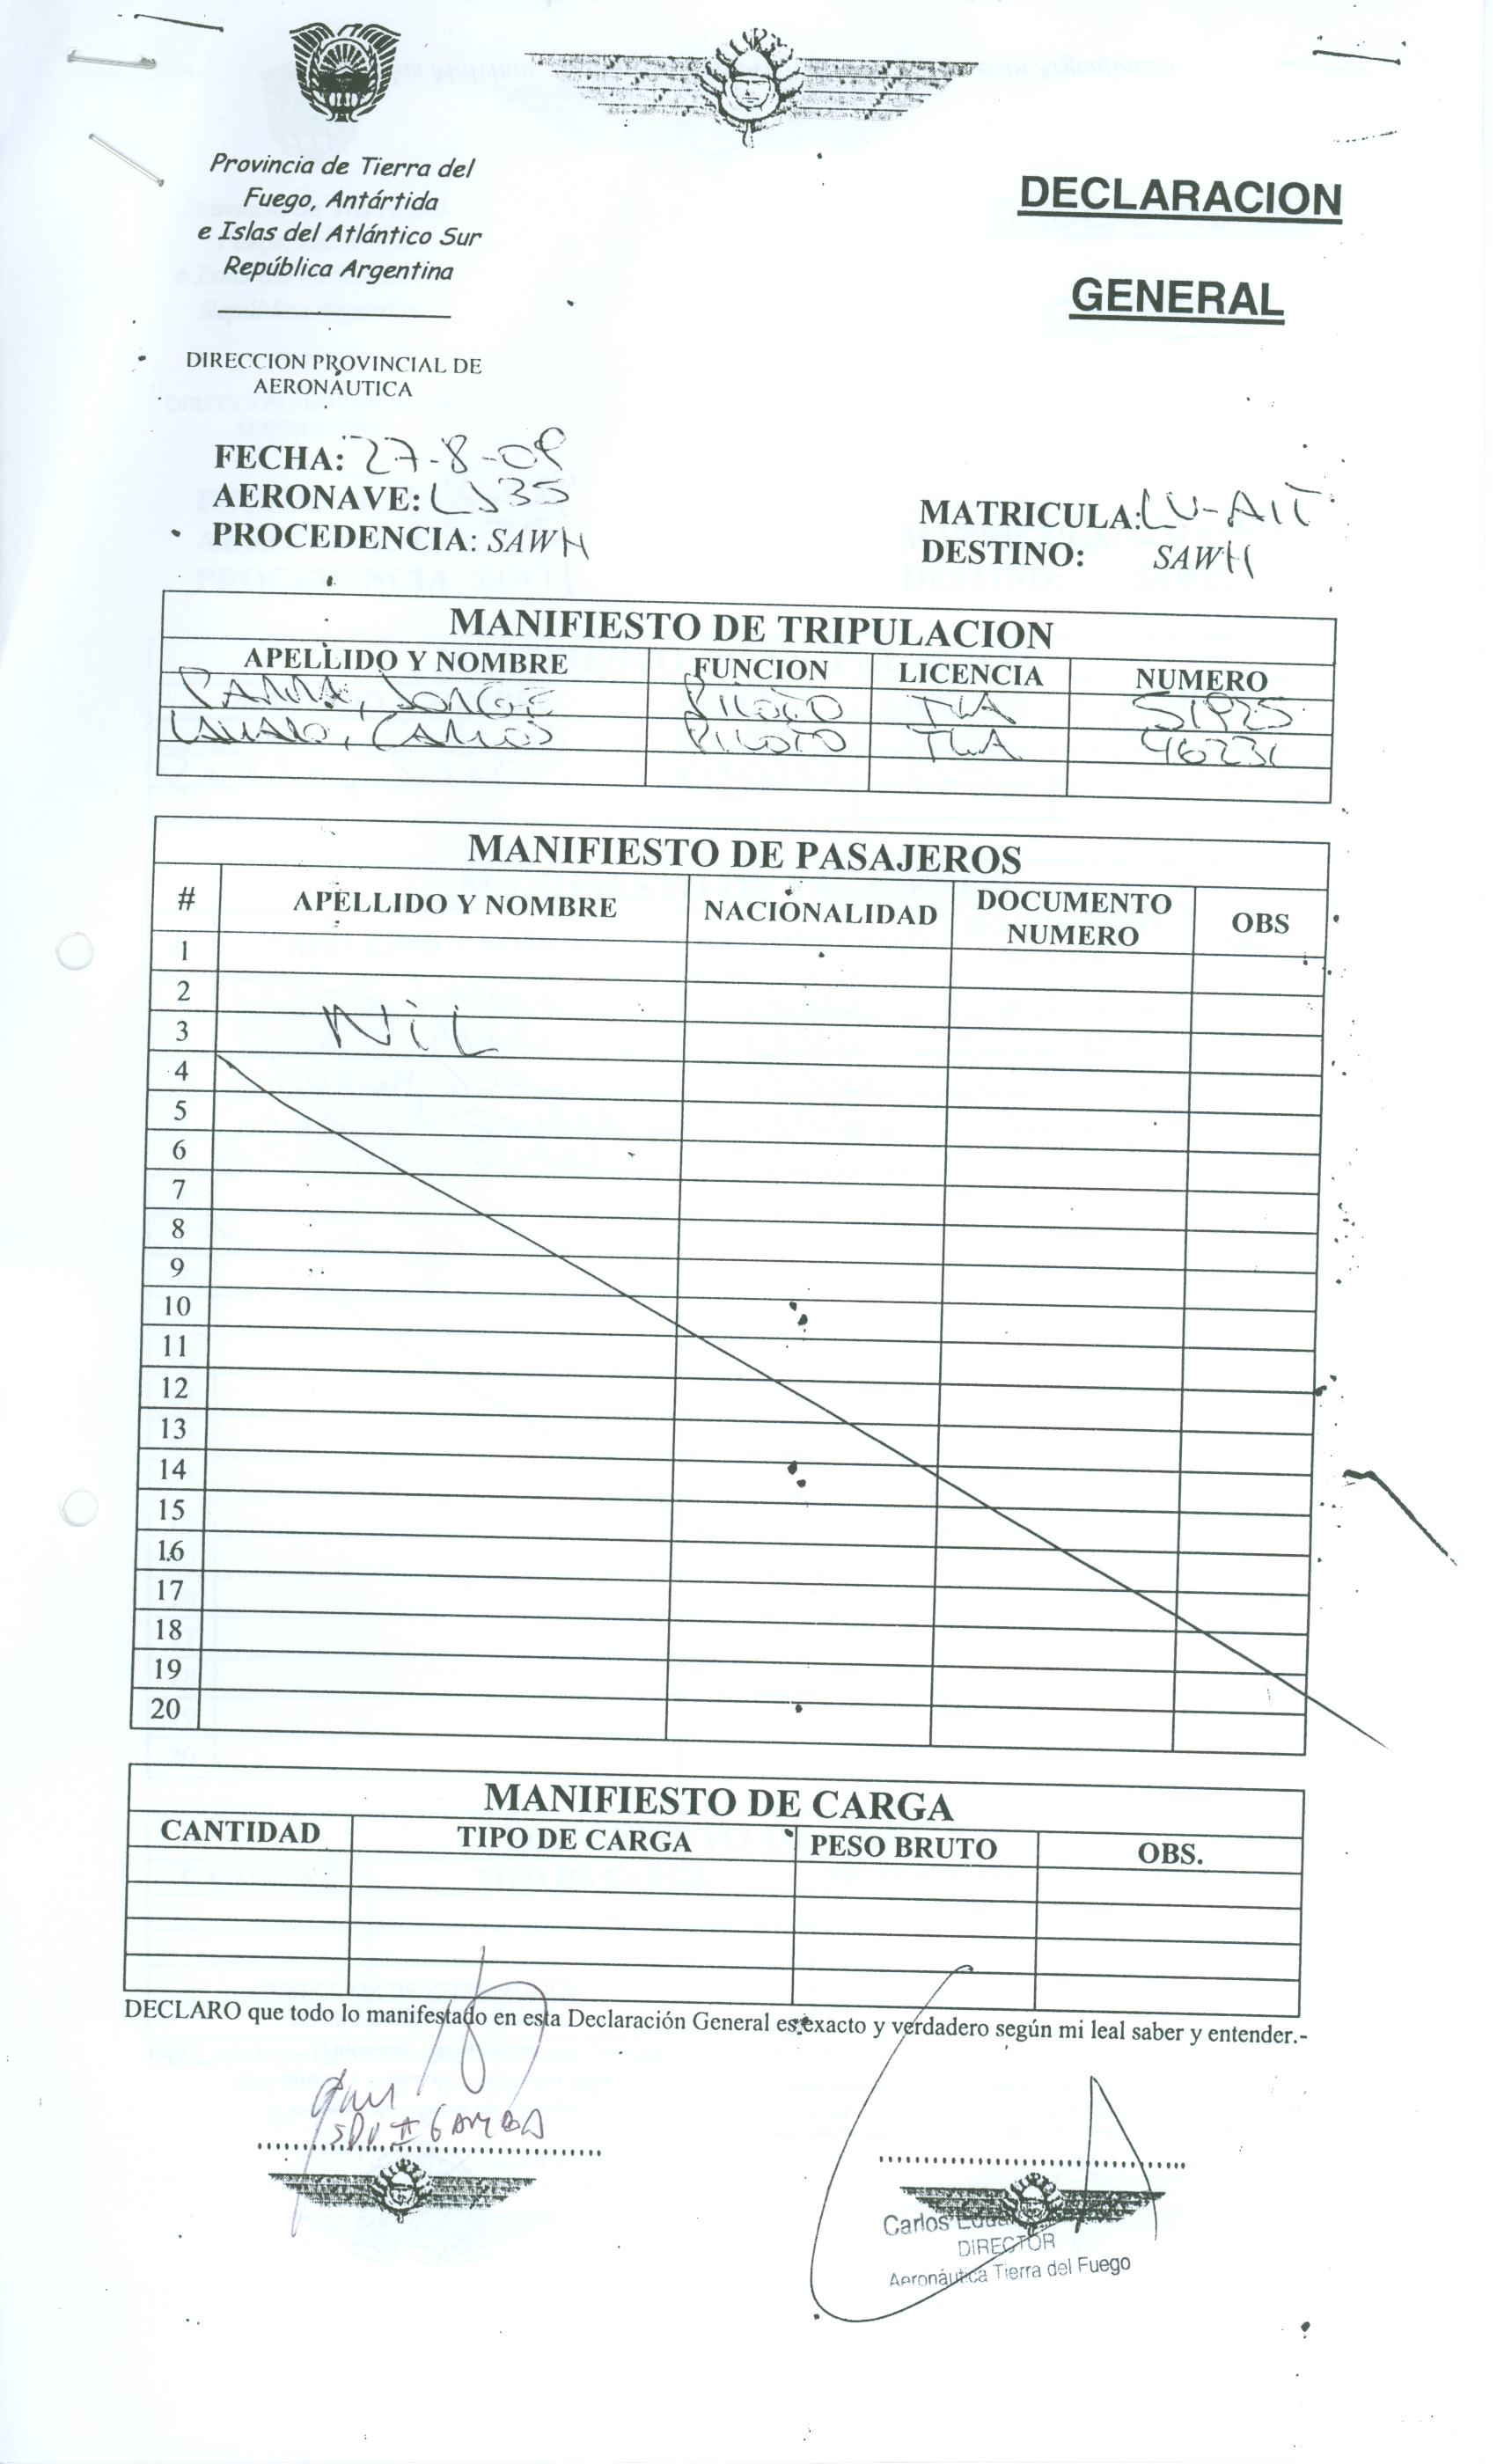 Provincia de Tierra del
Fuego, Antártida
e Islas del Atlántico Sur
República Argentina
DECLARACION
GENERAL
DIRECCION PROVINCIAL DE
AERONÁUTICA
FECHA: 27-8-09
AERONAVE: LJ35
PROCEDENCIA: SAWH
MATRICULA: LV-AIT
DESTINO: SAWH
MANIFIESTO DE TRIPULACION
APELLIDO Y NOMBRE FUNCION LICENCIA NUMERO
JORGE PILOTO TLA 51925
CARLOS PILOTO TLA 46231
MANIFIESTO DE PASAJEROS
# APELLIDO Y NOMBRE NACIONALIDAD DOCUMENTO NUMERO OBS
1
2
3 NIL
4
5
6
7
8
9
10
11
12
13
14
15
16
17
18
19
20
MANIFIESTO DE CARGA
CANTIDAD TIPO DE CARGA PESO BRUTO OBS.
DECLARO que todo lo manifestado en esta Declaración General es exacto y verdadero según mi leal saber y entender.-
Carlos
DIRECTOR
Aeronáutica Tierra del Fuego